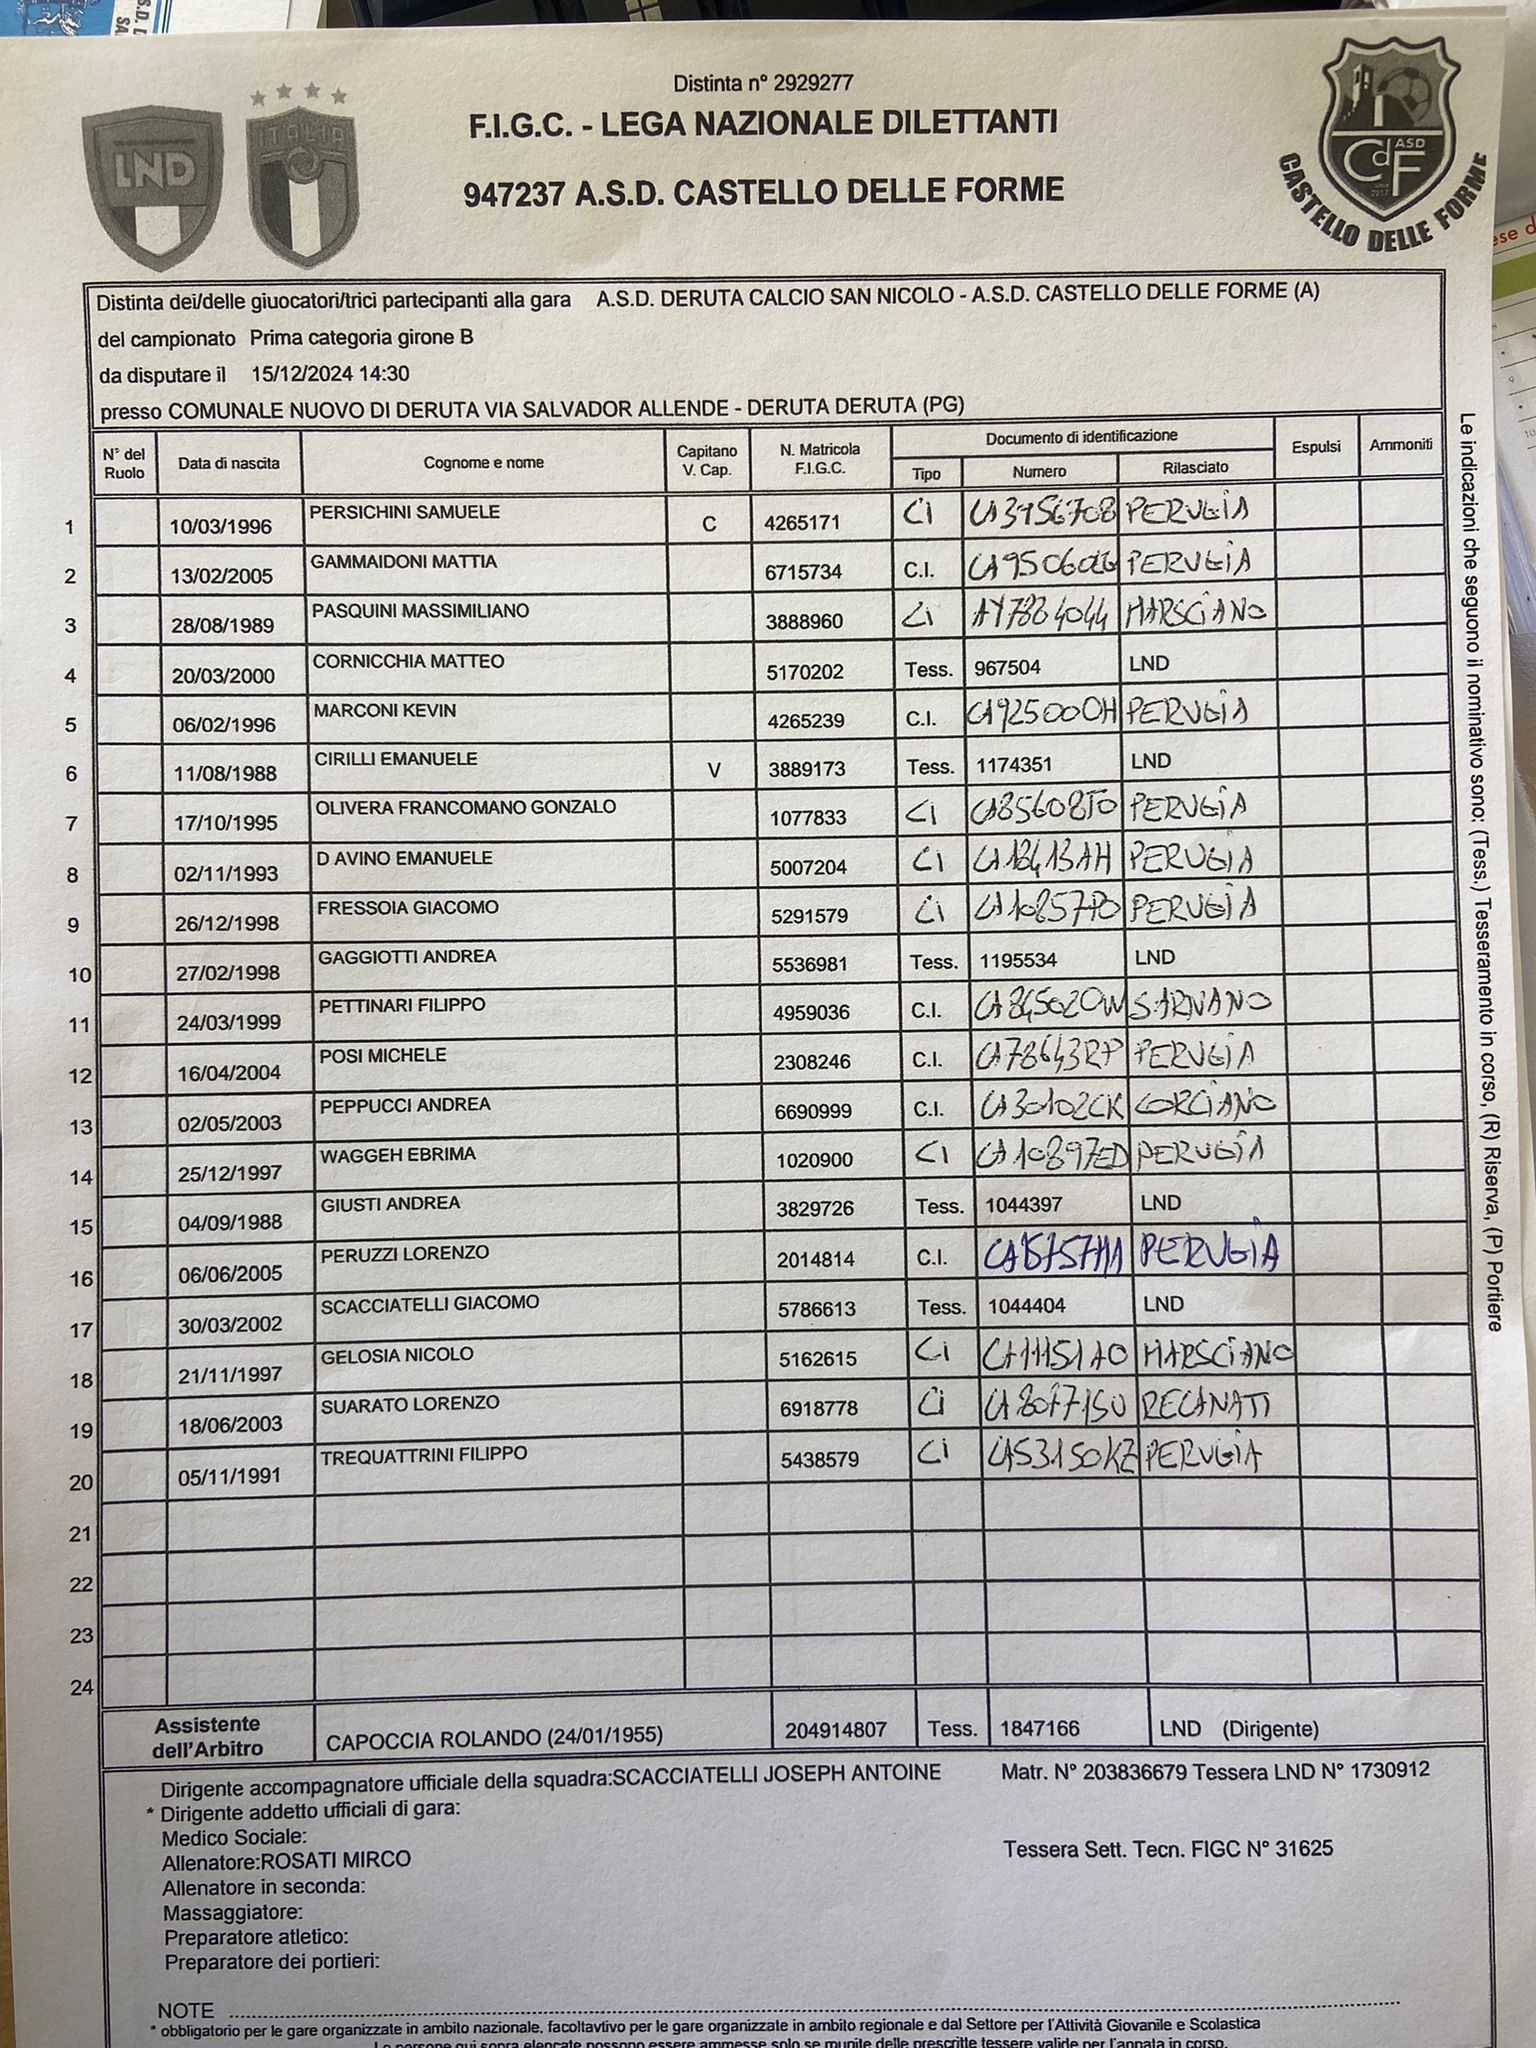 Distinta n° 2929277
F.I.G.C. - LEGA NAZIONALE DILETTANTI
947237 A.S.D. CASTELLO DELLE FORME
LND
ITALIA
ASD
CdF
CASTELLO DELLE FORME
Distinta dei/delle giuocatori/trici partecipanti alla gara A.S.D. DERUTA CALCIO SAN NICOLO - A.S.D. CASTELLO DELLE FORME (A)
del campionato Prima categoria girone B
da disputare il 15/12/2024 14:30
presso COMUNALE NUOVO DI DERUTA VIA SALVADOR ALLENDE - DERUTA DERUTA (PG)
N° del Ruolo Data di nascita Cognome e nome Capitano V. Cap. N. Matricola F.I.G.C. Documento di identificazione Espulsi Ammoniti
Tipo Numero Rilasciato
1 10/03/1996 PERSICHINI SAMUELE C 4265171 CI PERUGIA
2 13/02/2005 GAMMAIDONI MATTIA 6715734 C.I. PERUGIA
3 28/08/1989 PASQUINI MASSIMILIANO 3888960 CI MARSCIANO
4 20/03/2000 CORNICCHIA MATTEO 5170202 Tess. 967504 LND
5 06/02/1996 MARCONI KEVIN 4265239 C.I. PERUGIA
6 11/08/1988 CIRILLI EMANUELE V 3889173 Tess. 1174351 LND
7 17/10/1995 OLIVERA FRANCOMANO GONZALO 1077833 CI PERUGIA
8 02/11/1993 D AVINO EMANUELE 5007204 CI PERUGIA
9 26/12/1998 FRESSOIA GIACOMO 5291579 CI PERUGIA
10 27/02/1998 GAGGIOTTI ANDREA 5536981 Tess. 1195534 LND
11 24/03/1999 PETTINARI FILIPPO 4959036 C.I. SARNANO
12 16/04/2004 POSI MICHELE 2308246 C.I. CA78643RP PERUGIA
13 02/05/2003 PEPPUCCI ANDREA 6690999 C.I. CA30102CK CORCIANO
14 25/12/1997 WAGGEH EBRIMA 1020900 CI CA10897ED PERUGIA
15 04/09/1988 GIUSTI ANDREA 3829726 Tess. 1044397 LND
16 06/06/2005 PERUZZI LORENZO 2014814 C.I. PERUGIA
17 30/03/2002 SCACCIATELLI GIACOMO 5786613 Tess. 1044404 LND
18 21/11/1997 GELOSIA NICOLO 5162615 CI CA11151AO MARSCIANO
19 18/06/2003 SUARATO LORENZO 6918778 CI RECANATI
20 05/11/1991 TREQUATTRINI FILIPPO 5438579 CI CA53150KZ PERUGIA
21
22
23
24
Assistente dell'Arbitro CAPOCCIA ROLANDO (24/01/1955) 204914807 Tess. 1847166 LND (Dirigente)
Dirigente accompagnatore ufficiale della squadra:SCACCIATELLI JOSEPH ANTOINE Matr. N° 203836679 Tessera LND N° 1730912
* Dirigente addetto ufficiali di gara:
Medico Sociale:
Allenatore:ROSATI MIRCO Tessera Sett. Tecn. FIGC N° 31625
Allenatore in seconda:
Massaggiatore:
Preparatore atletico:
Preparatore dei portieri:
NOTE
* obbligatorio per le gare organizzate in ambito nazionale, facoltavtivo per le gare organizzate in ambito regionale e dal Settore per l'Attività Giovanile e Scolastica
Le persone qui sopra elencate possono essere ammesse solo se munite delle prescritte tessere valide per l'annata in corso.
Le indicazioni che seguono il nominativo sono: (Tess.) Tesseramento in corso, (R) Riserva, (P) Portiere